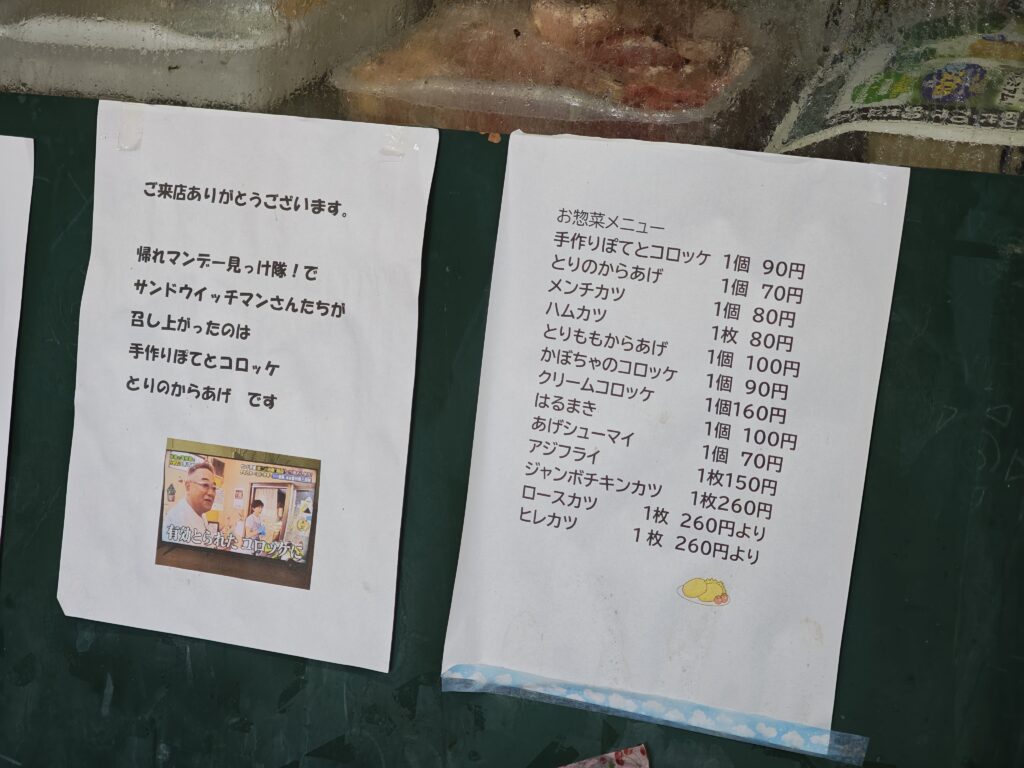 ご来店ありがとうございます。
帰れマンデー見っけ隊！で
サンドウイッチマンさんたちが
召し上がったのは
手作りぽてとコロッケ
とりのからあげ です
有効とられた コロッケに
お惣菜メニュー
手作りぽてとコロッケ 1個 90円
とりのからあげ 1個 70円
メンチカツ 1個 80円
ハムカツ 1枚 80円
とりももからあげ 1個 100円
かぼちゃのコロッケ 1個 90円
クリームコロッケ 1個160円
はるまき 1個 100円
あげシューマイ 1個 70円
アジフライ 1枚150円
ジャンボチキンカツ 1枚260円
ロースカツ 1枚 260円より
ヒレカツ 1枚 260円より